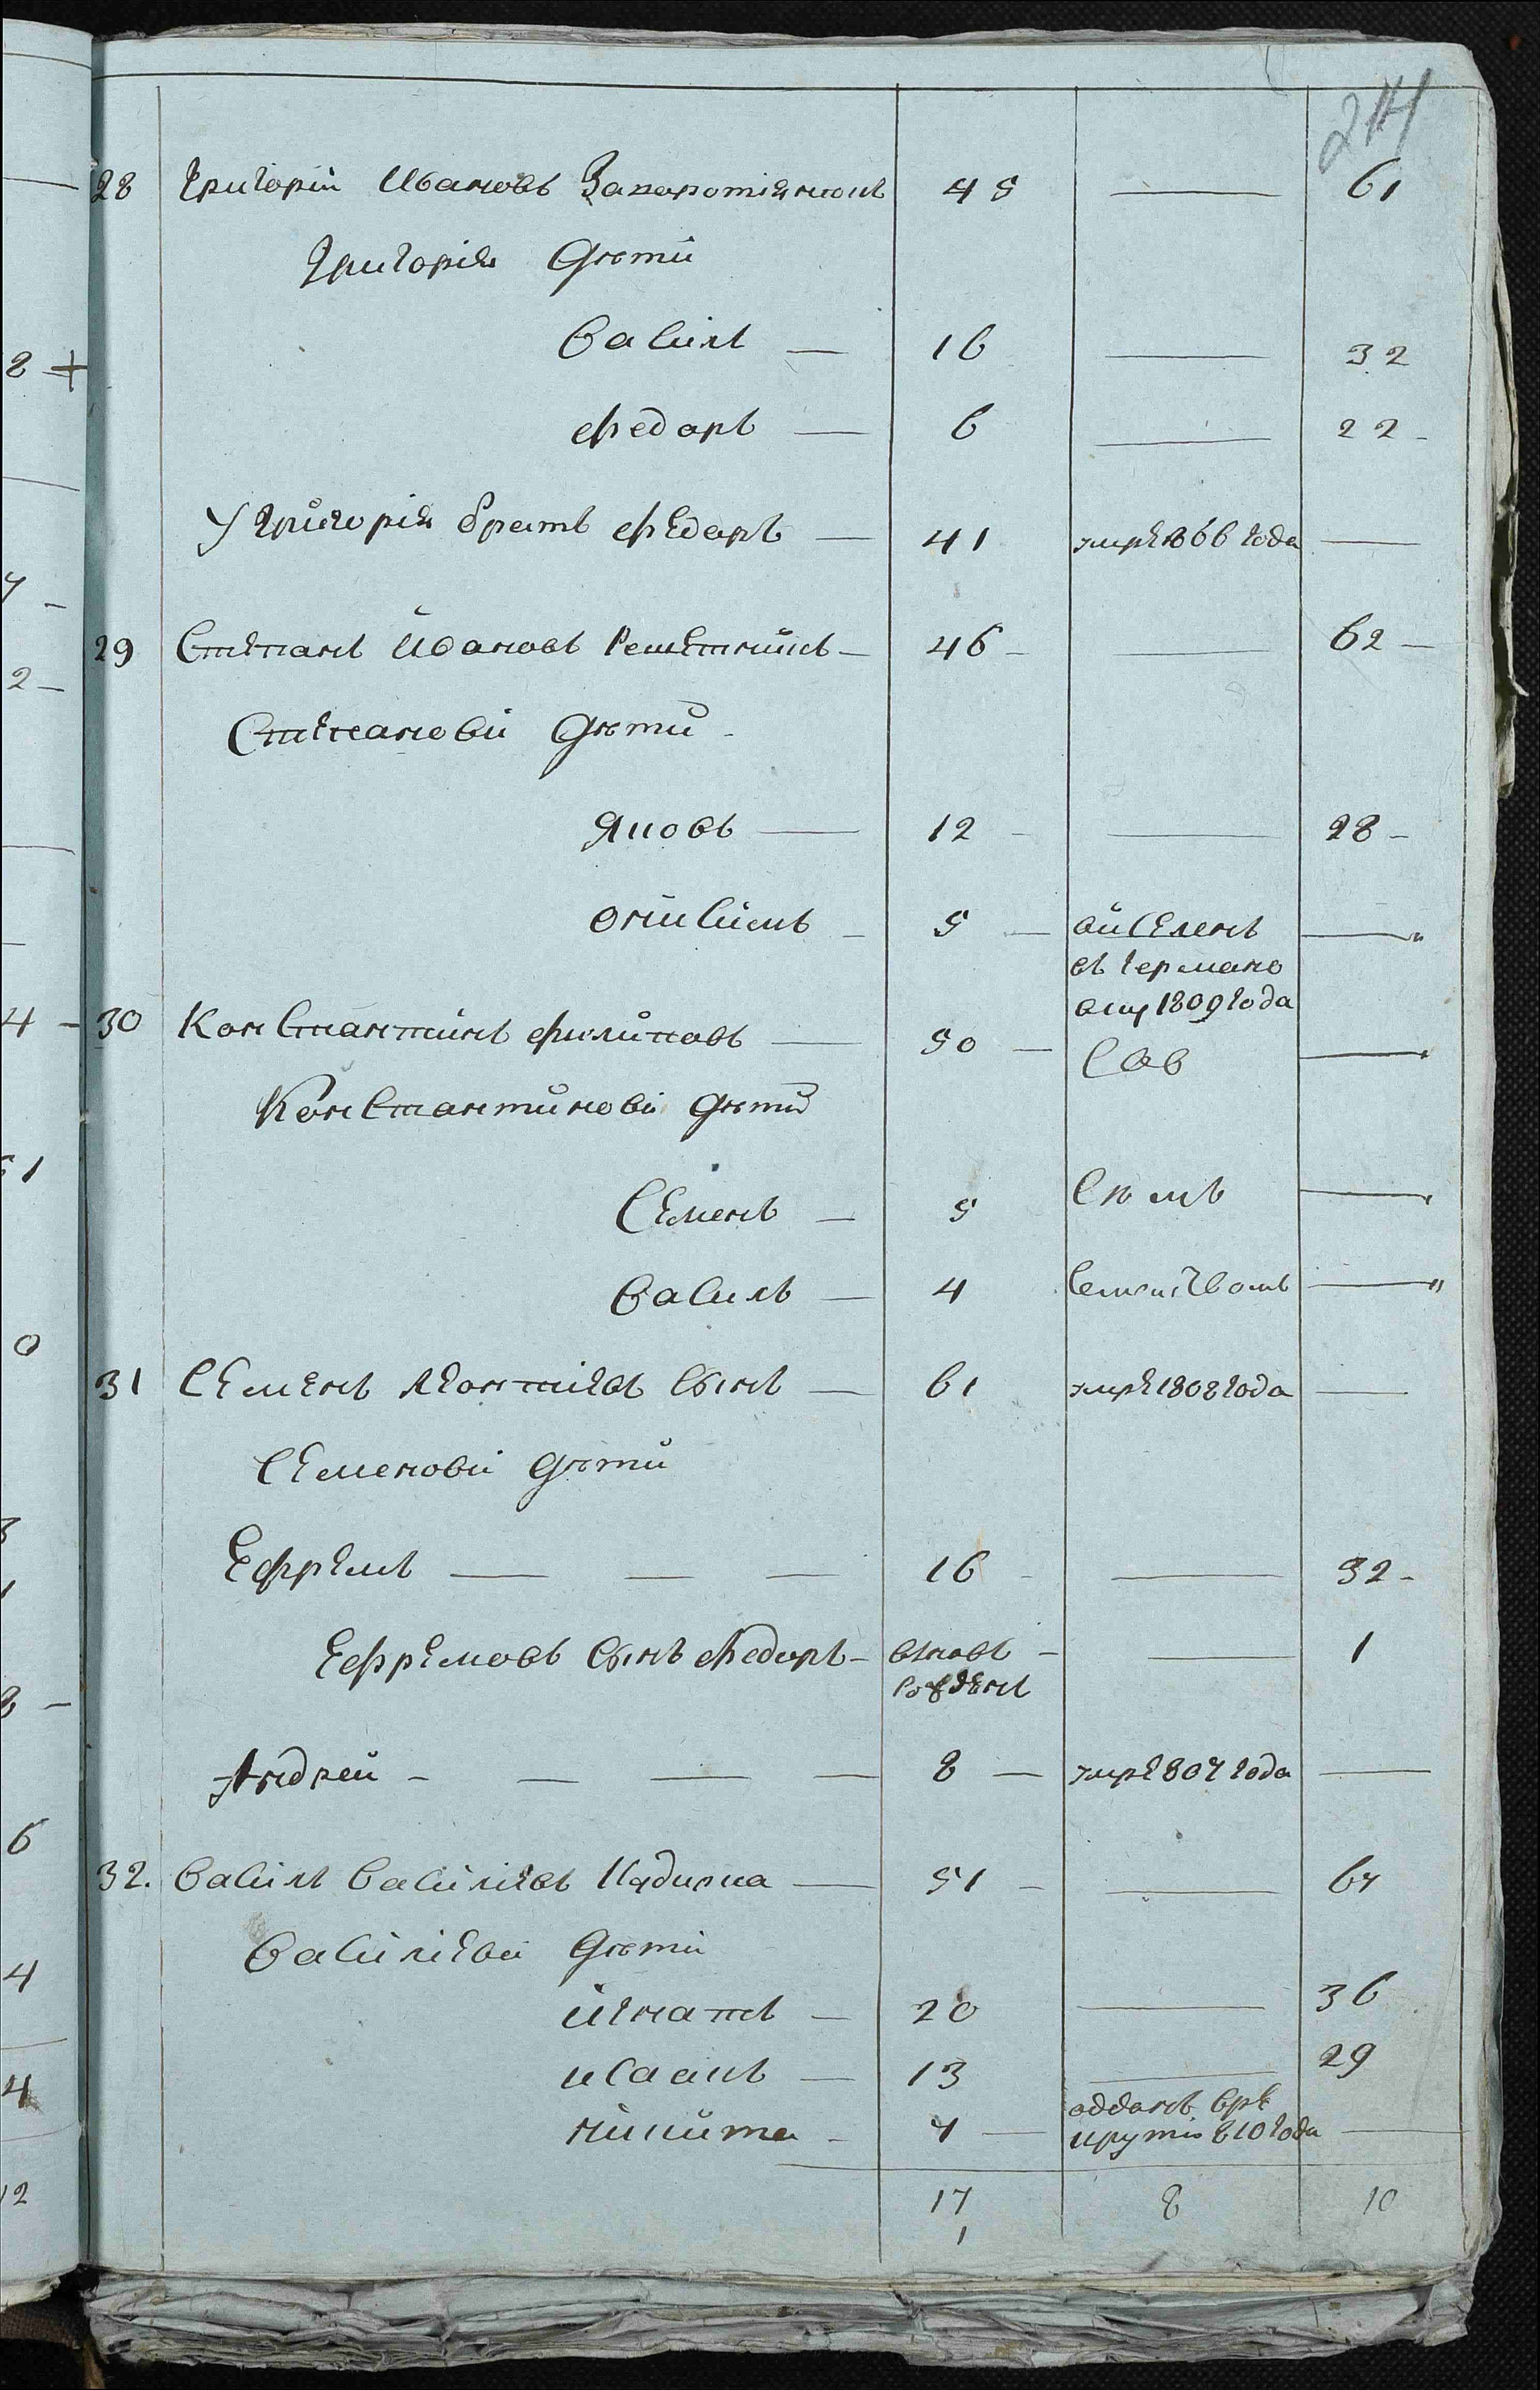 214
28 Григорій Ивановъ 45 — 61
Григорія дѣти
Василъ — 16 — 32
Федоръ — 6 — 22 -
У Григорія братъ Федоръ — 41 умре 1806 года —
29 Степанъ Ивановъ Решетнинъ — 46 - — 62 —
Степанови дѣти -
Яковъ — 12 - — 28 -
Онисимъ - 5 — виселенъ —
въ Германо
1809 года
30 Констянтинъ Филиповъ — 50 — Сов —
Константинови дѣти
Семенъ — 5 Сѣмъ —
Василъ — 4 —
31 Семенъ Леонтиевъ Синъ — 61 умре 1808 года —
Семенови дѣти
Ефремъ — — — 16 - — 32 -
Ефремовъ Синъ Федоръ - вновъ - — 1
рожденъ
Андрей - — — — 8 — умре 807 года —
32. Василъ Василиевъ Кадилка — 51 - — 67
Василиеви дѣти
Игнатъ — 20 — 36
Исаакъ — 13 — 29
Никита - 4 — оддань в ре —
круты 810 года
17 8 10
1
8 +
7 -
2 -
4 -
51
0
8 -
6
4
4
12